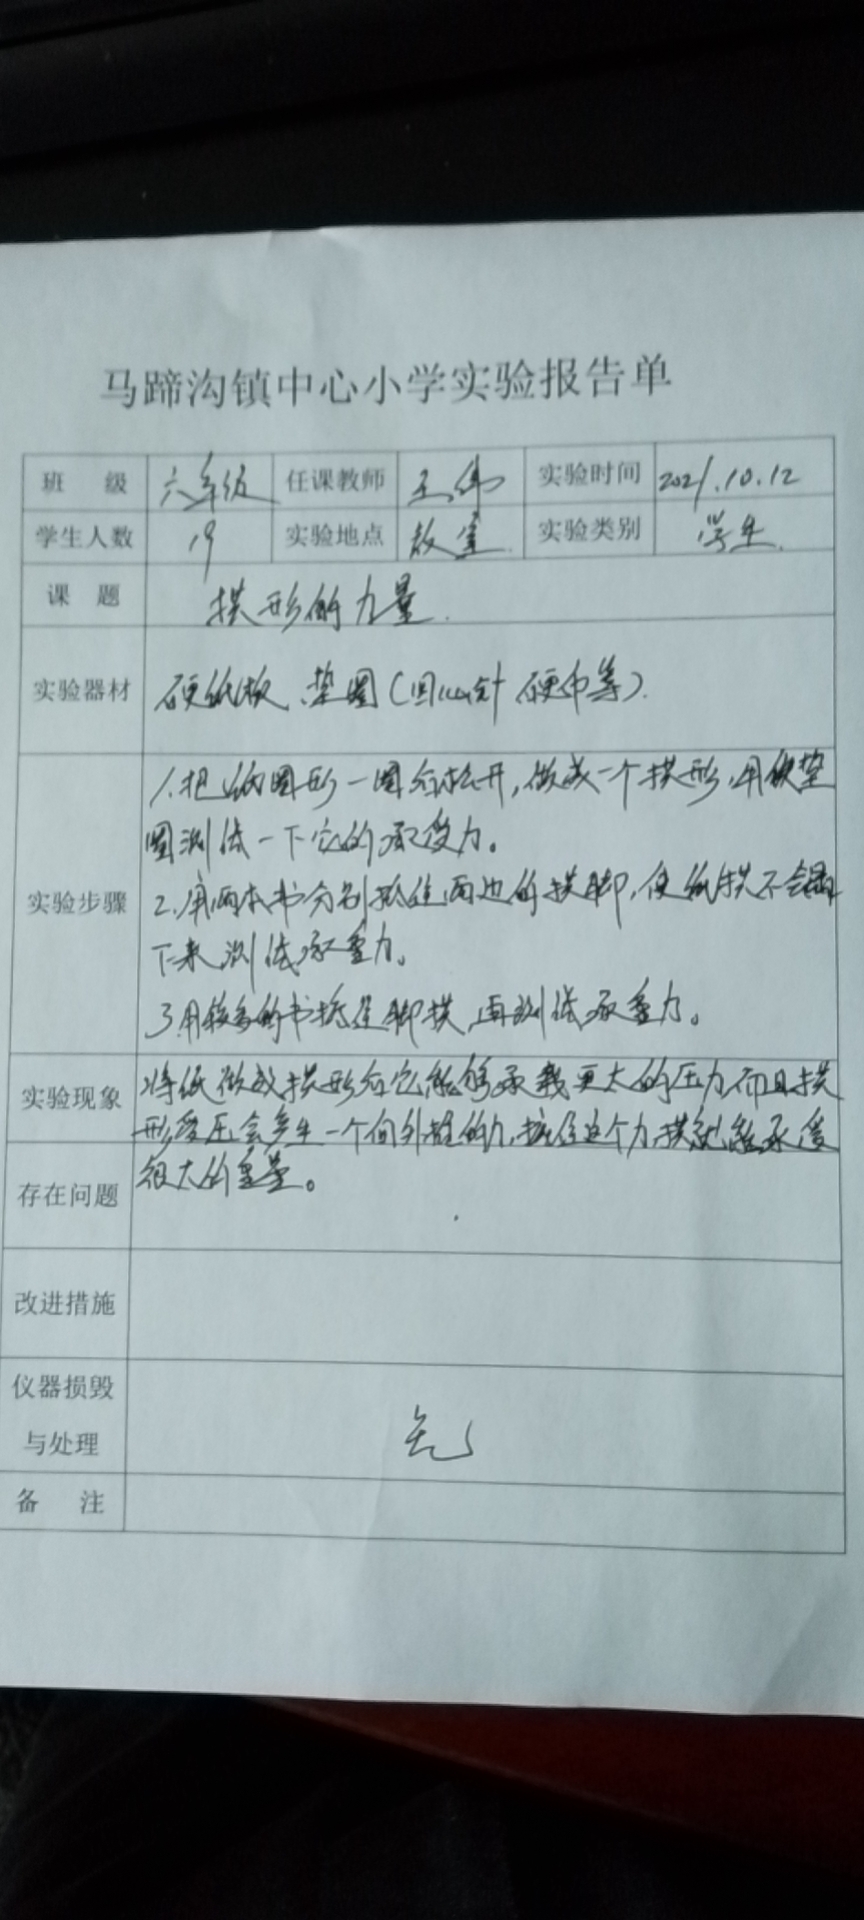 马蹄沟镇中心小学实验报告单
班 级 六年级 任课教师 王伟 实验时间 2021.10.12
学生人数 19 实验地点 教室 实验类别 学生
课 题 拱形的力量
实验器材 硬纸板、垫圈(回心针 硬币等).
1.把纸圆形一圈后松开,做成一个拱形,用铁垫
圈测试一下它的承受力。
实验步骤 2.用两本书分别抵住两边的拱脚,使纸拱不会塌
下来,测试承重力。
3用较多的书抵住脚拱,再测试承重力。
实验现象 将纸做成拱形后它能够承载更大的压力而且拱
形受压会产生一个向外推的力,抵住这个力,拱就能承受
很大的重量。
存在问题
改进措施
仪器损毁
与处理 无
备 注